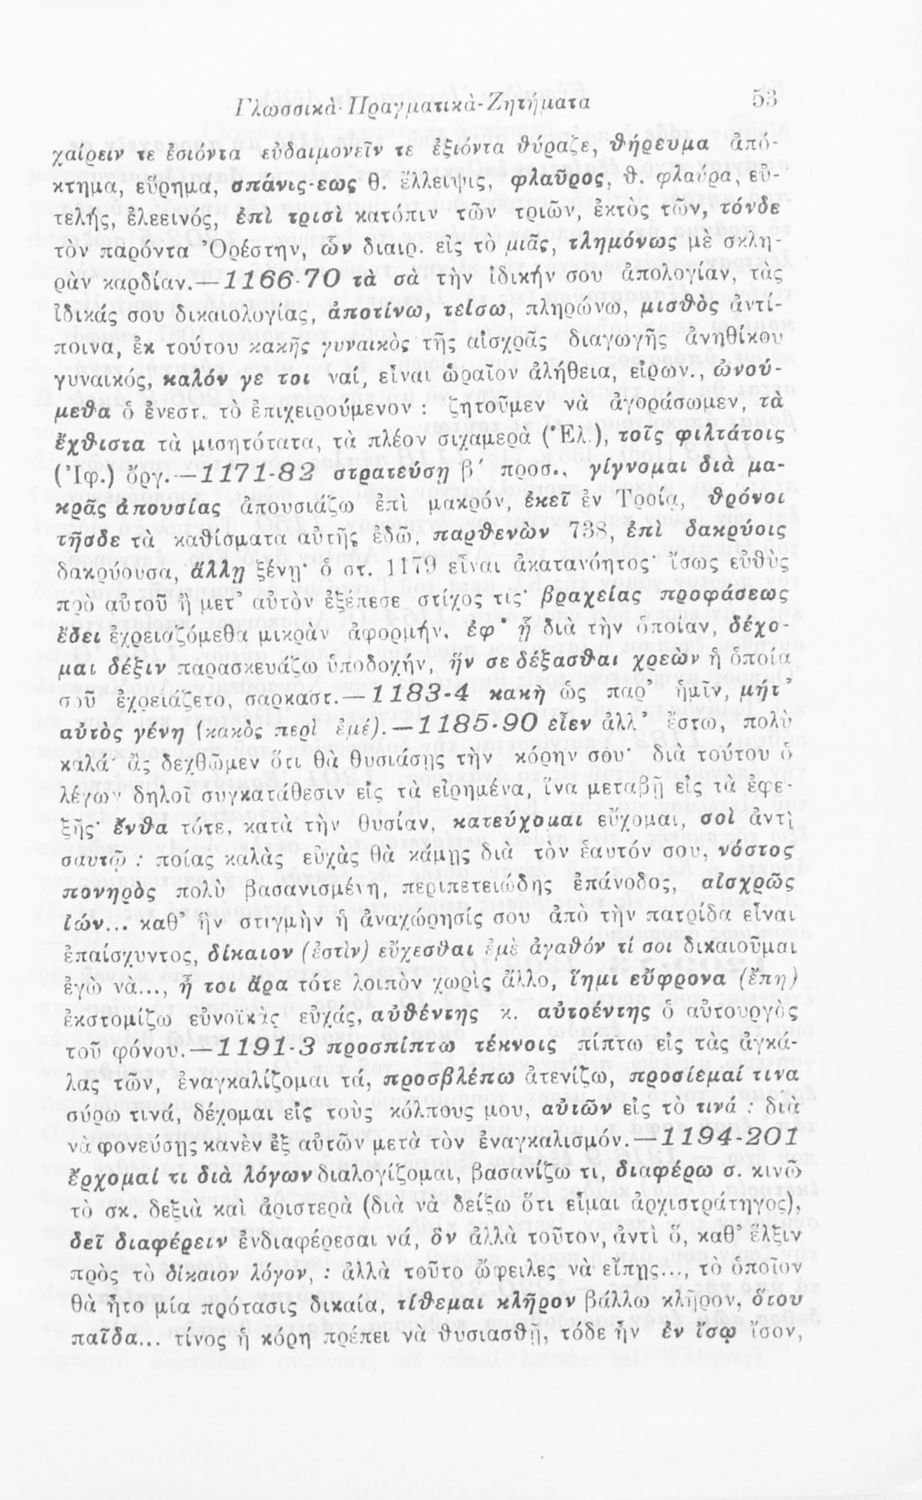 Γλωσσικὰ-Πραγματικὰ-Ζητήματα 53
χαίρειν τε ἐσιόντα εὐδαιμονεῖν τε ἐξιόντα θύραζε, θήρευμα ἀπό-
κτημα, εὕρημα, σπάνις-εως θ. ἔλλειψις, φλαῦρος, θ. φλαύρα, εὐ-
τελής, ἐλεεινός, ἐπὶ τρισὶ κατόπιν τῶν τριῶν, ἐκτὸς τῶν, τόνδε
τὸν παρόντα Ὀρέστην, ὧν διαιρ. εἰς τὸ μιᾶς, τλημόνως μὲ σκλη-
ρὰν καρδίαν.—1166-70 τὰ σὰ τὴν ἰδικήν σου ἀπολογίαν, τὰς
ἰδικάς σου δικαιολογίας, ἀποτίνω, τείσω, πληρώνω, μισθὸς ἀντί-
ποινα, ἐκ τούτου κακῆς γυναικὸς τῆς αἰσχρᾶς διαγωγῆς ἀνηθίκου
γυναικός, καλόν γε τοι ναί, εἶναι ὡραῖον ἀλήθεια, εἰρων., ὠνού-
μεθα ὁ ἐνεστ. τὸ ἐπιχειρούμενον : ζητοῦμεν νὰ ἀγοράσωμεν, τὰ
ἔχθιστα τὰ μισητότατα, τὰ πλέον σιχαμερὰ (Ἑλ.), τοῖς φιλτάτοις
(Ἰφ.) ὀργ.—1171-82 στρατεύσῃ β΄ προσ., γίγνομαι διὰ μα-
κρᾶς ἀπουσίας ἀπουσιάζω ἐπὶ μακρόν, ἐκεῖ ἐν Τροίᾳ, θρόνοι
τῆσδε τὰ καθίσματα αὐτῆς ἐδῶ, παρθενὼν 738, ἐπὶ δακρύοις
δακρύουσα, ἄλλῃ ξένῃ· ὁ στ. 1179 εἶναι ἀκατανόητος· ἴσως εὐθὺς
πρὸ αὐτοῦ ἢ μετ’ αὐτὸν ἐξέπεσε στίχος τις· βραχείας προφάσεως
ἔδει ἐχρειαζόμεθα μικρὰν ἀφορμήν, ἐφ’ ᾗ διὰ τὴν ὁποίαν, δέχο-
μαι δέξιν παρασκευάζω ὑποδοχήν, ἥν σε δέξασθαι χρεὼν ἡ ὁποία
σοῦ ἐχρειάζετο, σαρκαστ.—1183-4 κακὴ ὡς παρ’ ἡμῖν, μήτ’
αὐτὸς γένῃ (κακὸς περὶ ἐμέ).—1185-90 εἶεν ἀλλ’ ἔστω, πολὺ
καλά· ἂς δεχθῶμεν ὅτι θὰ θυσιάσῃς τὴν κόρην σου· διὰ τούτου ὁ
λέγων δηλοῖ συγκατάθεσιν εἰς τὰ εἰρημένα, ἵνα μεταβῇ εἰς τὰ ἐφε-
ξῆς· ἔνθα τότε, κατὰ τὴν θυσίαν, κατεύχομαι εὔχομαι, σοὶ ἀντὶ
σαυτῷ : ποίας καλὰς εὐχὰς θὰ κάμῃς διὰ τὸν ἑαυτόν σου, νόστος
πονηρὸς πολὺ βασανισμένη, περιπετειώδης ἐπάνοδος, αἰσχρῶς
ἰών... καθ’ ἣν στιγμὴν ἡ ἀναχώρησίς σου ἀπὸ τὴν πατρίδα εἶναι
ἐπαίσχυντος, δίκαιον (ἐστὶν) εὔχεσθαι ἐμὲ ἀγαθόν τί σοι δικαιοῦμαι
ἐγὼ νὰ..., ἦ τοι ἄρα τότε λοιπὸν χωρὶς ἄλλο, ἵημι εὔφρονα (ἔπη)
ἐκστομίζω εὐνοϊκὰς εὐχάς, αὐθέντης κ. αὐτοέντης ὁ αὐτουργὸς
τοῦ φόνου.—1191-3 προσπίπτω τέκνοις πίπτω εἰς τὰς ἀγκά-
λας τῶν, ἐναγκαλίζομαι τά, προσβλέπω ἀτενίζω, προσίεμαί τινα
σύρω τινά, δέχομαι εἰς τοὺς κόλπους μου, αὐτῶν εἰς τὸ τινά : διὰ
νὰ φονεύσῃς κανὲν ἐξ αὐτῶν μετὰ τὸν ἐναγκαλισμόν.—1194-201
ἔρχομαί τι διὰ λόγων διαλογίζομαι, βασανίζω τι, διαφέρω σ. κινῶ
τὸ σκ. δεξιὰ καὶ ἀριστερὰ (διὰ νὰ δείξω ὅτι εἶμαι ἀρχιστράτηγος),
δεῖ διαφέρειν ἐνδιαφέρεσαι νά, ὃν ἀλλὰ τοῦτον, ἀντὶ ὅ, καθ’ ἕλξιν
πρὸς τὸ δίκαιον λόγον, : ἀλλὰ τοῦτο ὤφειλες νὰ εἴπῃς..., τὸ ὁποῖον
θὰ ἦτο μία πρότασις δικαία, τίθεμαι κλῆρον βάλλω κλῆρον, ὅτου
παῖδα... τίνος ἡ κόρη πρέπει νὰ θυσιασθῇ, τόδε ἦν ἐν ἴσῳ ἴσον,